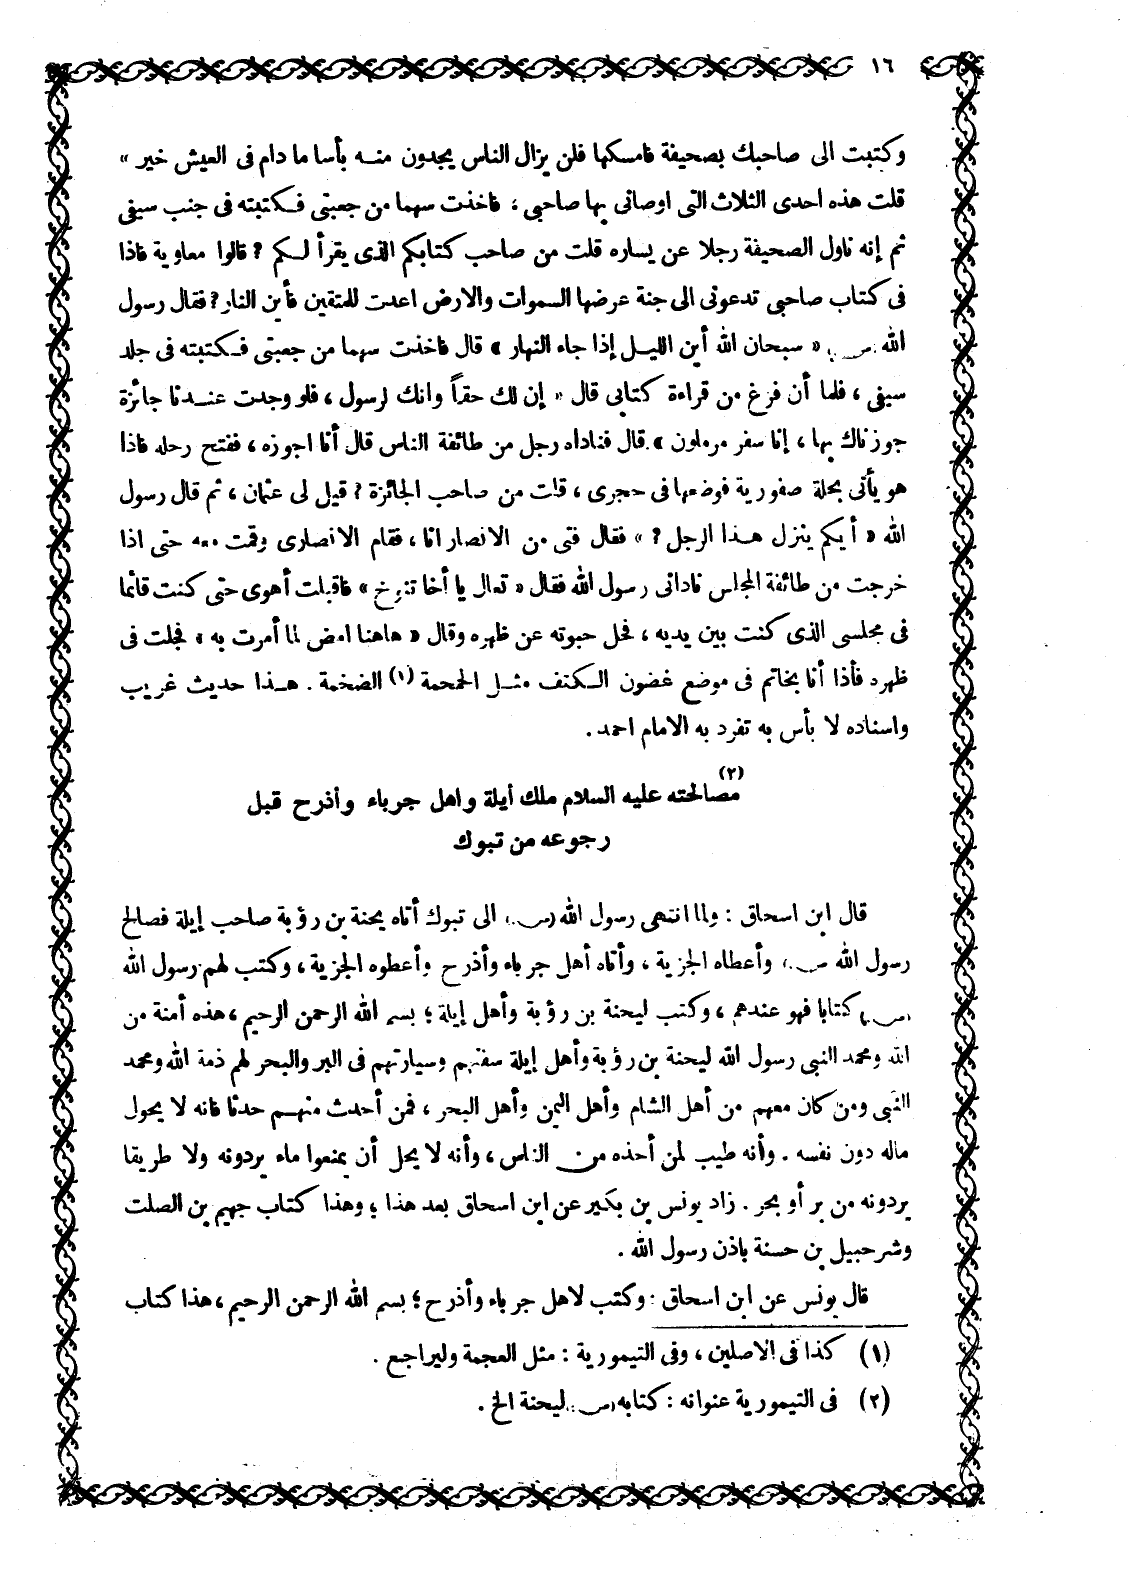 ١٦
وكتبت الى صاحبك بصحيفة فامسكها فلن يزال الناس يجدون منه بأسا ما دام فى العيش خير »
قلت هذه احدى الثلاث التى اوصانى بها صاحبى ؛ فاخذت سهما من جعبتى فكتبته فى جنب سيفى
ثم إنه ناول الصحيفة رجلا عن يساره قلت من صاحب كتابكم الذى يقرأ لكم ? قالوا معاوية فاذا
فى كتاب صاحبى تدعونى الى جنة عرضها السموات والارض اعدت للمتقين فأين النار ? فقال رسول
الله (ص) « سبحان الله أين الليل إذا جاء النهار » قال فاخذت سهما من جعبتى فكتبته فى جلد
سيفى ، فلما أن فرغ من قراءة كتابى قال « إن لك حقاً وانك لرسول ، فلو وجدت عندنا جائزة
جوزناك بها ، إنا سفر مرملون » قال فناداه رجل من طائفة الناس قال أنا اجوزه ، ففتح رحله فاذا
هو يأتى بحلة صفورية فوضعها فى حجرى ، قلت من صاحب الجائزة ? قيل لى عثمان ، ثم قال رسول
الله « أيكم ينزل هذا الرجل ? » فقال فتى من الانصار انا ، فقام الانصارى وقمت معه حتى اذا
خرجت من طائفة المجلس نادانى رسول الله فقال « تعال يا أخا تنوخ » فاقبلت أهوى حتى كنت قائما
فى مجلسى الذى كنت بين يديه ، فحل حبوته عن ظهره وقال « هاهنا امض لما أمرت به » فجلت فى
ظهره فأذا أنا بخاتم فى موضع غضون الكتف مثل الحمحمة (١) الضخمة . هذا حديث غريب
واسناده لا بأس به تفرد به الامام احمد .
مصالحته (٢) عليه السلام ملك أيلة واهل جرباء وأذرح قبل
رجوعه من تبوك
قال ابن اسحاق : ولما انتهى رسول الله (ص) الى تبوك أتاه يحنة بن رؤبة صاحب إيلة فصالح
رسول الله (ص) وأعطاه الجزية ، وأتاه أهل جرباء وأذرح وأعطوه الجزية ، وكتب لهم رسول الله
(ص) كتابا فهو عندهم ، وكتب ليحنة بن رؤبة وأهل إيلة ؛ بسم الله الرحمن الرحيم ، هذه أمنة من
الله ومحمد النبى رسول الله ليحنة بن رؤبة وأهل إيلة سفنهم وسيارتهم فى البر والبحر لهم ذمة الله ومحمد
النبى ومن كان معهم من أهل الشام وأهل اليمن وأهل البحر ، فمن أحدث منهم حدثا فانه لا يحول
ماله دون نفسه . وأنه طيب لمن أخذه من الناس ، وأنه لا يحل أن يمنعوا ماء يردونه ولا طريقا
يردونه من بر أو بحر . زاد يونس بن بكير عن ابن اسحاق بعد هذا ؛ وهذا كتاب جهيم بن الصلت
وشرحبيل بن حسنة باذن رسول الله .
قال يونس عن ابن اسحاق : وكتب لاهل جرباء وأذرح ؛ بسم الله الرحمن الرحيم ، هذا كتاب
(١) كذا فى الاصلين ، وفى التيمورية : مثل العجمة وليراجع .
(٢) فى التيمورية عنوانه : كتابه (ص) ليحنة الخ .